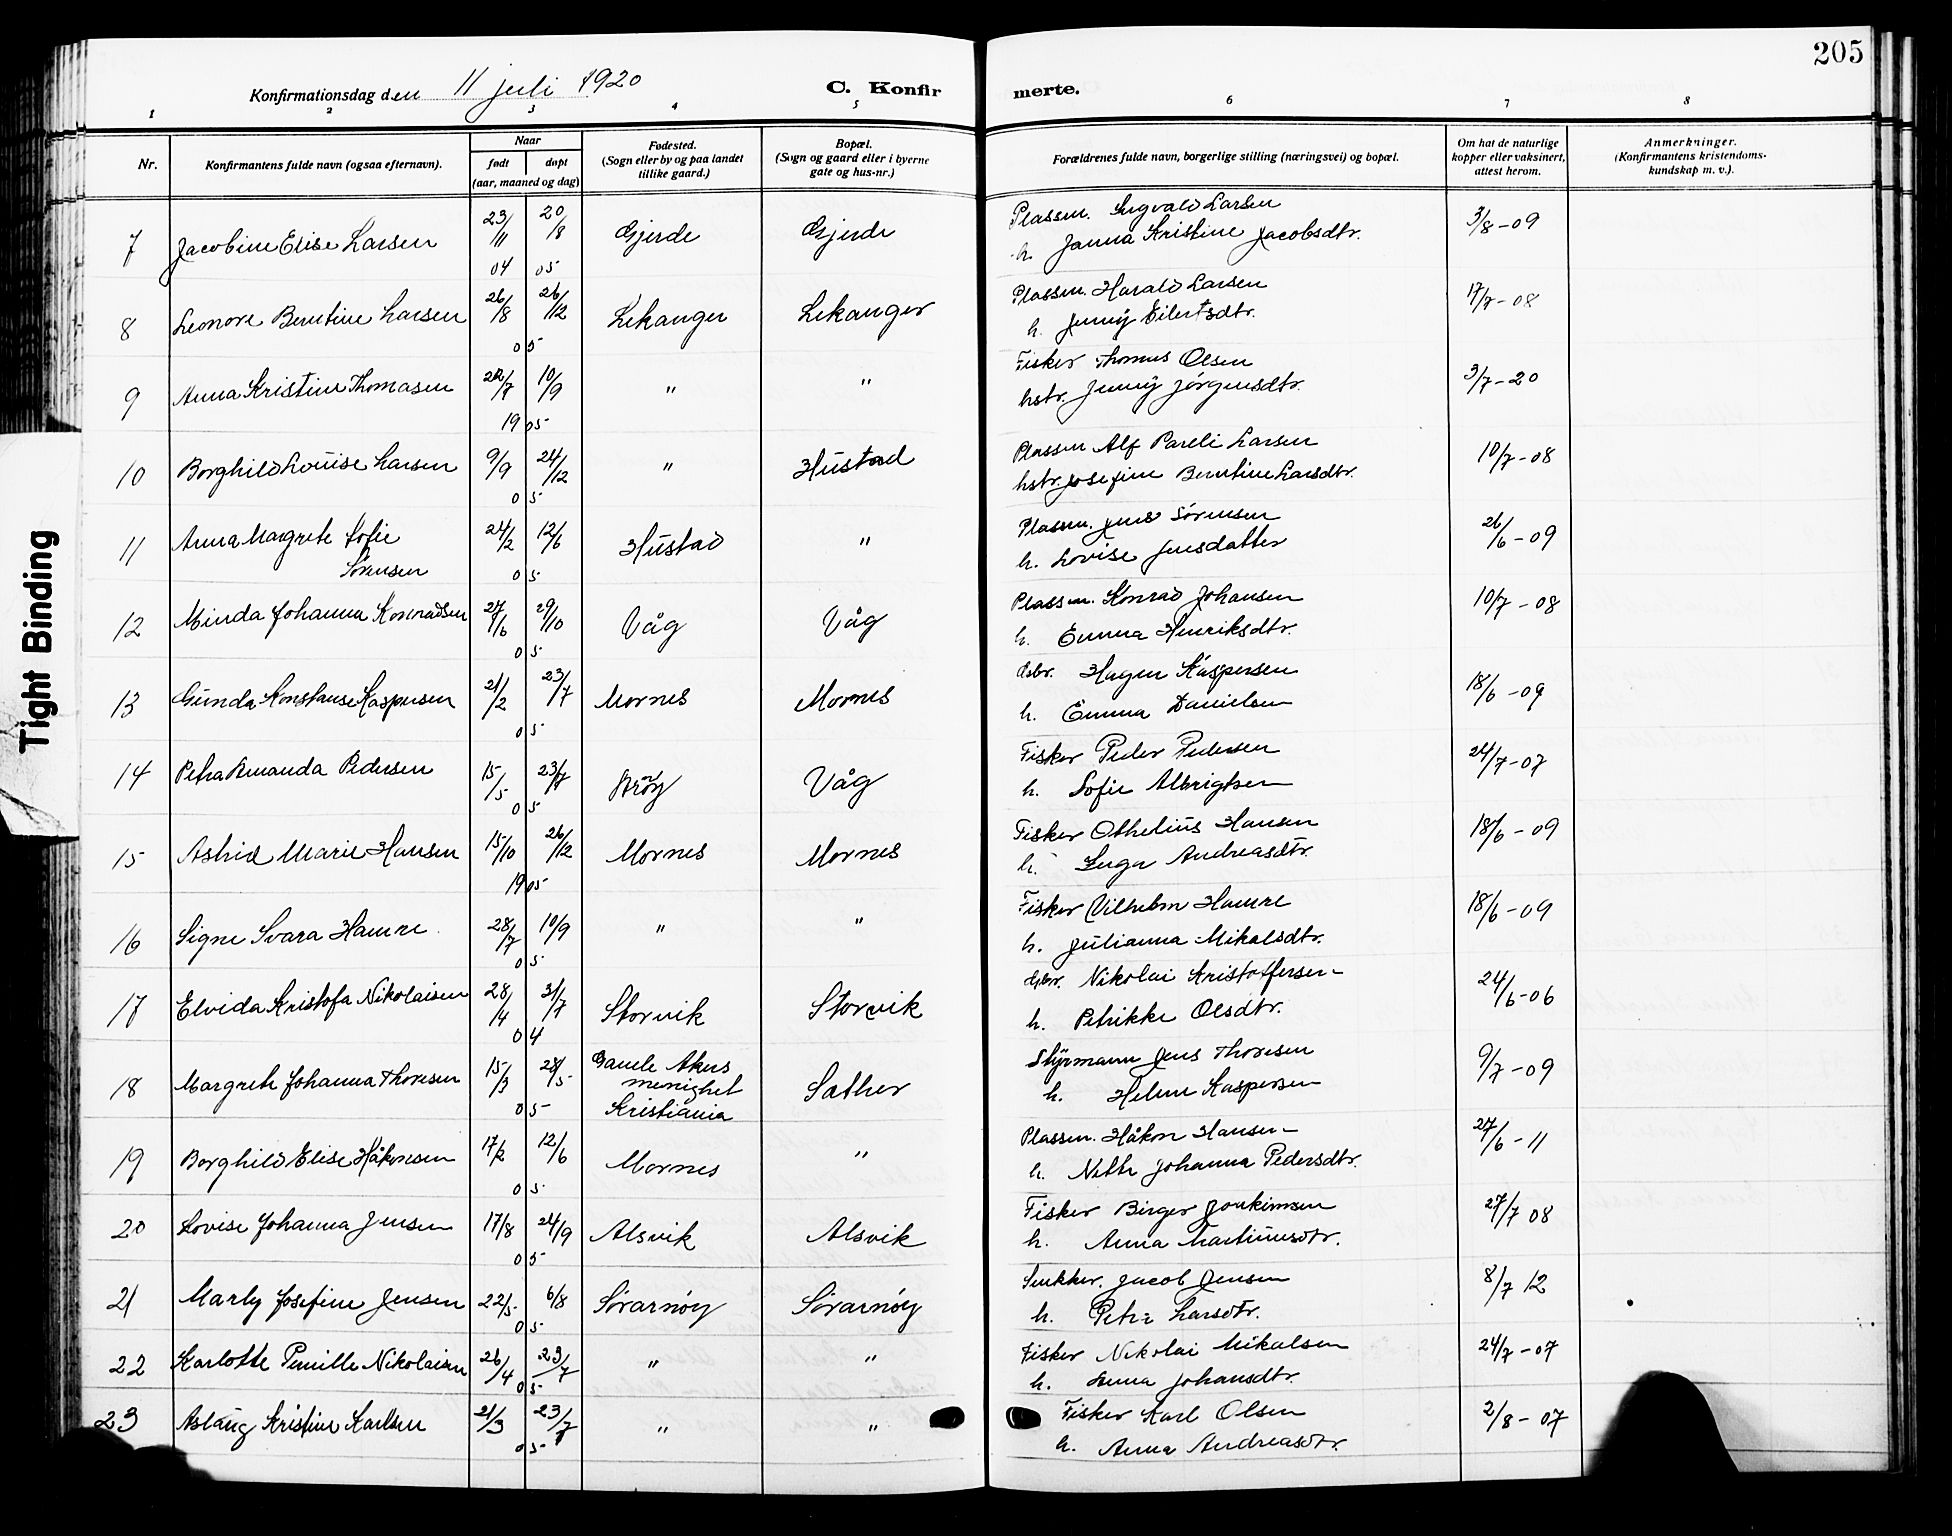 205
Konfirmationsdag den 11 juli 1920
C. Konfirmerte.
1 2 3 4 5 6 7 8
Nr.
Konfirmantens fulde navn (ogsaa efternavn).
Naar
født døpt
(aar, maaned og dag)
Fødested.
(Sogn eller by og paa landet
tillike gaard.)
Bopæl.
(Sogn og gaard eller i byerne
gate og hus-nr.)
Forældrenes fulde navn, borgerlige stilling (næringsvei) og bopæl.
Om hat de naturlige
kopper eller vaksinert,
attest herom.
Anmerkninger.
(Konfirmantens kristendoms-
kundskap m. v.).
7 Jacobine Elise Larsen 23/11 04 20/8 05 Gjerde Gjerde Plassm. Ingvald Larsen 3/8-09
h. Janna Kristine Jacobsdtr.
8 Leonore Berntine Larsen 26/8 26/12 05 Lekanger Lekanger Plassm. Harald Larsen 17/7-08
h. Jenny Eilertsdtr.
9 Anna Kristine Thomasen 22/7 10/9 1905 " " Fisker Thomas Olsen 3/7-20
hstr. Jenny Jørgensdtr.
10 Borghild Louise Larsen 9/9 24/12 05 " Hustad Plassm Alf Pareli Larsen 10/7-08
hstr. Josefine Berntine Larsdtr.
11 Anna Margrete Sofie 24/2 12/6 05 Hustad " Plassm. Jens Sørensen 26/6-09
Sørensen h. Lovise Jensdatter
12 Minda Johanna Konradsen 27/6 29/10 05 Våg Våg Plassm. Konrad Johansen 10/7-08
h. Emma Henriksdtr.
13 Gunda Konstanse Kaspersen 21/2 23/7 05 Mornes Mornes Gbr. Hagen Kaspersen 18/6-09
h. Emma Danielsen
14 Petra Amanda Pedersen 15/5 23/7 05 Arøy Våg Fisker Peder Pedersen 24/7-07
h. Sofie Albrigtsen
15 Astrid Marie Hansen 15/10 26/12 1905 Mornes Mornes Fisker Othelius Hansen 18/6-09
h. Inga Andreasdtr.
16 Signe Svara Hamre 28/7 10/9 05 " " Fisker Vilhelm Hamre 18/6-09
h. Julianna Mikalsdtr.
17 Elvida Kristofa Nikolaisen 28/4 31/7 04 Storvik Storvik Gbr. Nikolai Kristoffersen 24/6-06
h. Petrikke Olsdtr.
18 Margrete Johanna Thoresen 15/3 28/5 05 Gamle Akers Sather Styrmann Jens Thoresen 9/7-09
menighet
Kristiania h. Helene Kaspersen
19 Borghild Elise Håkonsen 17/2 12/6 05 Mornes " Plassm. Håkon Hansen 27/6-11
h. Nette Johanna Pedersdtr.
20 Lovise Johanna Jensen 17/8 24/9 05 Alsvik Alsvik Fisker Birger Joakimsen 27/7 08
h. Anna Martinusdtr.
21 Marly Josefine Jensen 22/5 6/8 05 Sørarnøy Sørarnøy Snekker. Jacob Jensen 8/7 12
h. Petra Larsdtr.
22 Karlotte Pernille Nikolaisen 26/4 23/7 05 " " Fisker Nikolai Mikalsen 24/7-07
h. Anna Johansdtr.
23 Aslaug Kristine Karlsen 21/3 23/7 05 " " Fisker Karl Olsen 2/8-07
h. Anna Andreasdtr.
Tight Binding